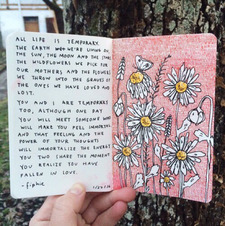 ALL LIFE IS TEMPORARY.
THE EARTH WE'RE LIVING ON,
THE SUN, THE MOON AND THE STARS,
THE WILDFLOWERS WE PICK FOR
OUR MOTHERS AND THE FLOWERS
WE THROW INTO THE GRAVES OF
THE ONES WE HAVE LOVED AND
LOST.
YOU AND I ARE TEMPORARY
TOO, ALTHOUGH ONE DAY
YOU WILL MEET SOMEONE WHO
WILL MAKE YOU FEEL IMMORTAL
AND THAT FEELING AND THE
POWER OF YOUR THOUGHTS
WILL IMMORTALISE THE ENERGY
YOU TWO SHARE THE MOMENT
YOU REALISE YOU HAVE
FALLEN IN LOVE.